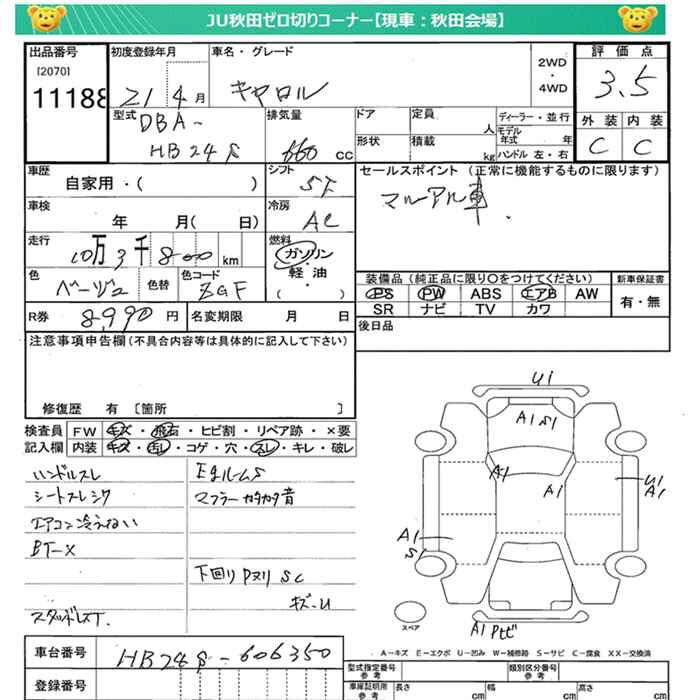 JU秋田ゼロ切りコーナー【現車：秋田会場】
出品番号 初度登録年月 車名・グレード 2WD・4WD 評価点
[2070]
11188 21 4月 キャロル 3.5
型式 DBA-HB24S 排気量 660 cc ドア 定員 人 ディーラー・並行
形状 積載 kg モデル年式 年 ハンドル 左・右
外装 内装
C C
車歴 自家用・( ) シフト 5F セールスポイント (正常に機能するものに限ります)
マニュアル車.
車検 年 月( 日) 冷房 AC
走行 10万3千800 km 燃料 ガソリン 軽油・( )
色 ベージュ 色替 色コード ZGF
装備品(純正品に限り〇をつけてください) 新車保証書
PS PW ABS エアB AW 有・無
SR ナビ TV カワ
R券 8,990円 名変期限 月 日 後日品
注意事項申告欄(不具合内容等は具体的に記入して下さい)
修復歴 有 〔箇所 〕
検査員記入欄 FW キズ・飛石・ヒビ割・リペア跡・×要
内装 キズ・汚レ・コゲ・穴・スレ・キレ・破レ
ハンドルスレ
シートスレシワ
エアコン冷えない
BT-X
スタッドレスT.
マフラーカタカタ音
下回りPヌリSC
キズ-U
U1
A1 S1
A1
A1
U1
A1
A1
S1
A1 Pヒビ
スペア
A－キズ E－エクボ U－凹み W－補修跡 S－サビ C－腐食 XX－交換済
車台番号 HB24S-606350
登録番号
型式指定番号 類別区分番号
車庫証明用参考 長さ cm 幅 参考 cm 高さ 参考 cm